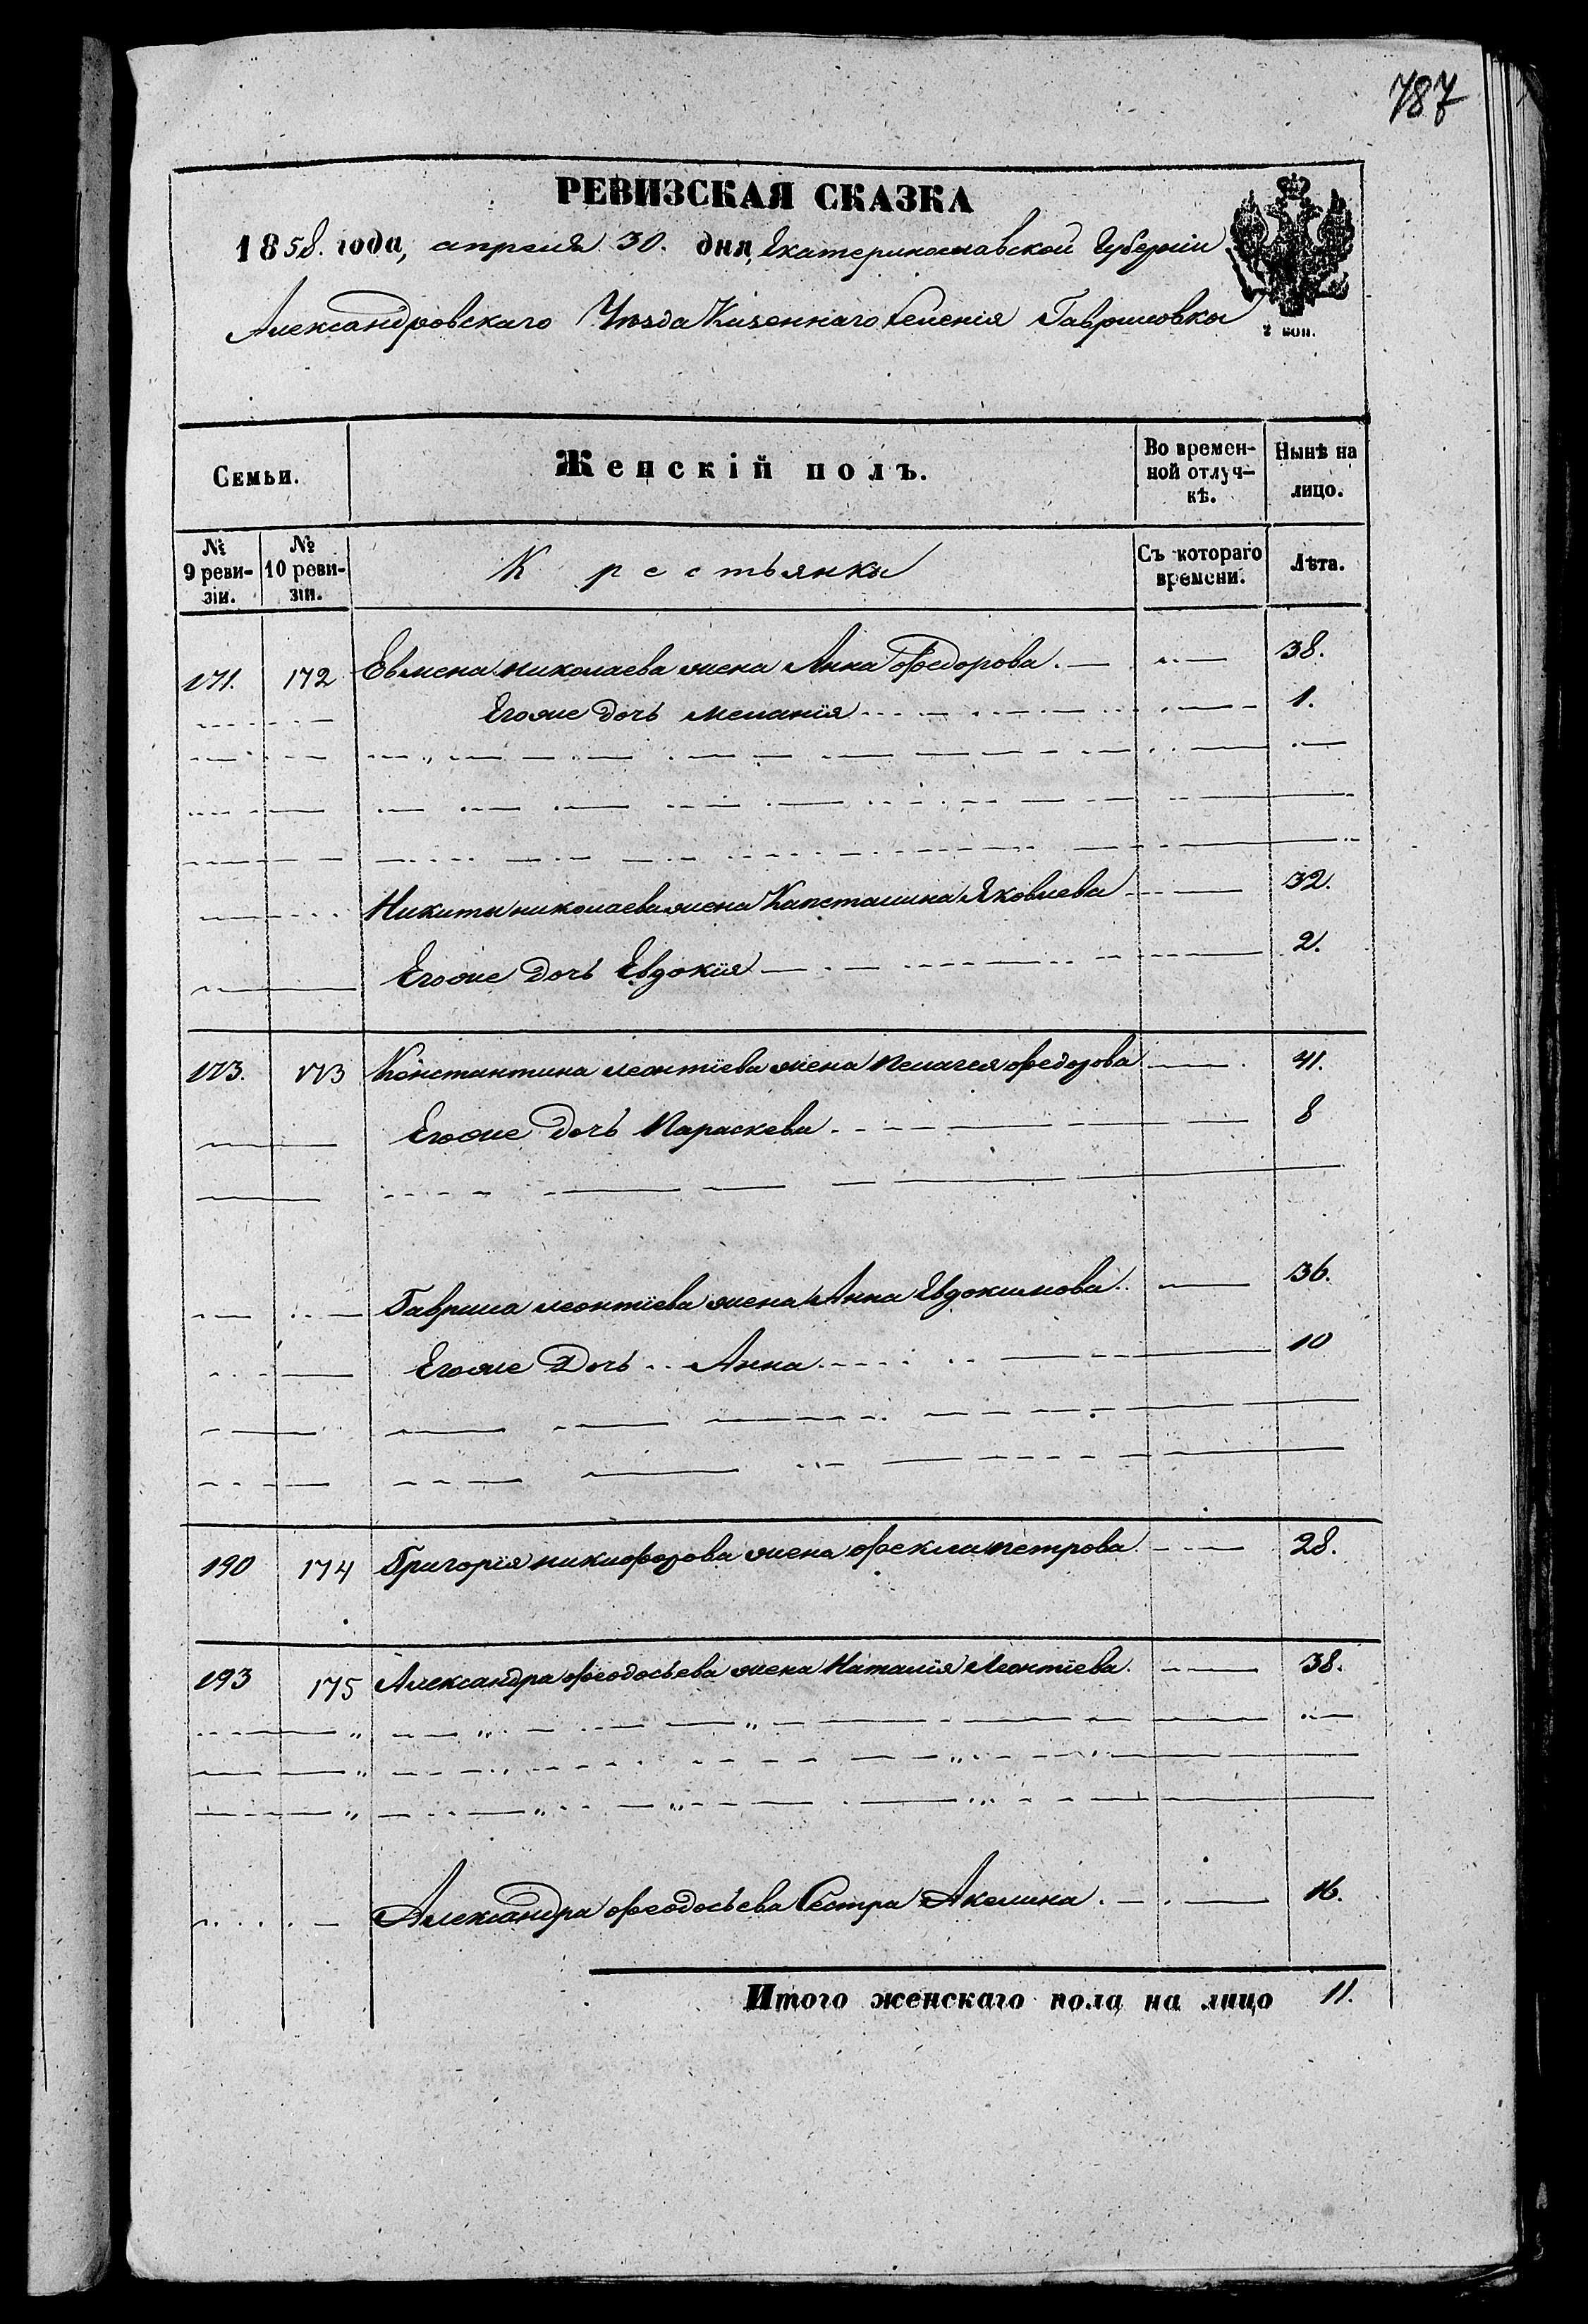 787
РЕВИЗСКАЯ СКАЗКА
1858. года, апреля 30. дня, Екатеринославской Губерніи
Александровскаго Уѣзда Казеннаго Селенія Гавриловки
2 коп.
Семьи. Женскій полъ. Во времен- Нынѣ на
ной отлуч- лицо.
кѣ.
№ № Крестьянки Съ котораго Лѣта.
9 реви- 10 реви- времени.
зіи. зіи.
171. 172 Евмена николаева жена Анна Федорова. 38.
Егоже дочь меланія 1.
Никиты николаева жена Капеталина Яковлева 32.
Егоже дочь Евдокія 2.
173. 173 Константина леонтіева жена Пелагея федорова 41.
Егоже дочь Параскева 8
Гаврила леонтіева жена Анна Евдокимова 36.
Егоже Дочь Анна 10
190 174 Григорія никифорова жена фекла петрова 28.
193 175 Александра феодосьева жена Наталія Леонтіева. 38.
Александра феодосьева Сестра Акелина. 16.
Итого женскаго пола на лицо 11.